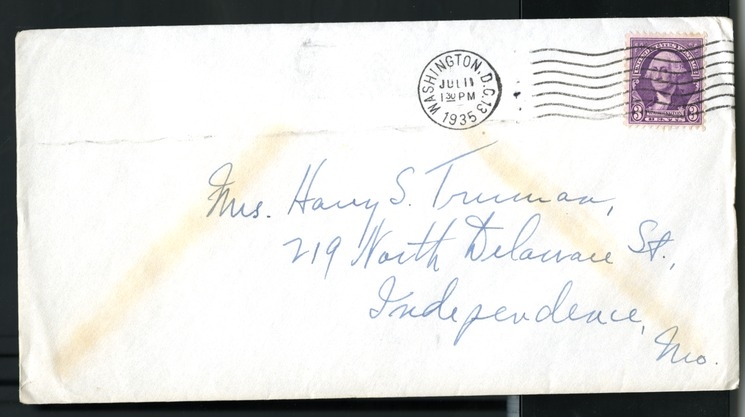 WASHINGTON, D.C. 13
JUL 11
1 30 PM
1935
UNITED STATES POSTAGE
3 3
Mrs. Harry S. Truman,
219 North Delaware St.,
Independence,
Mo.